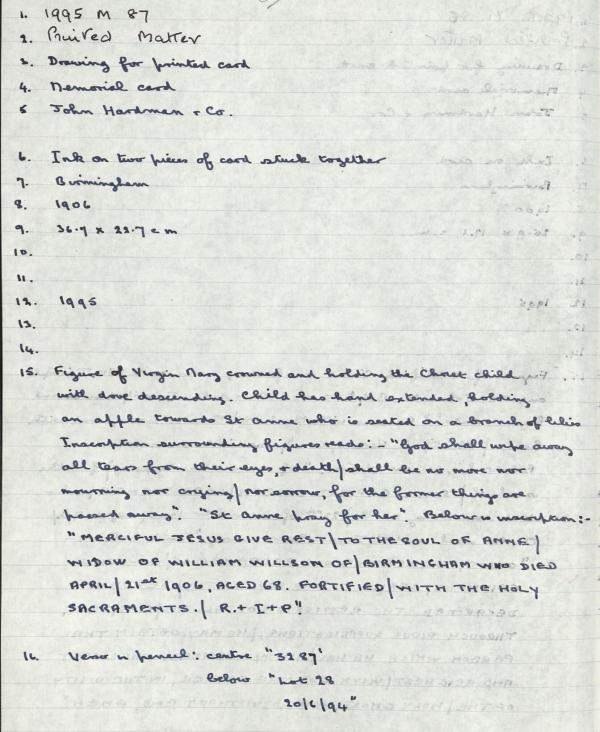 1. 1995 M 87
2. Printed Matter
3. Drawing for printed card
4. Memorial card
5 John Hardman + Co.
6. Ink on two pieces of card stuck together
7. Birmingham
8. 1906
9. 36.9 x 22.7 cm
10.
11.
12. 1995
13.
14.
15. Figure of Virgin Mary crowned and holding the Christ child
with dove descending. Child has hand extended holding
an apple towards St Anne who is seated on a branch of lilies
Inscription surrounding figures reads:- "God shall wipe away
all tears from their eyes, + death/shall be no more nor
mourning nor crying/nor sorrow, for the former things are
passed away". "St Anne pray for her". Below is inscription:-
"MERCIFUL JESUS GIVE REST/TO THE SOUL OF ANNE/
WIDOW OF WILLIAM WILLSON OF/BIRMINGHAM WHO DIED
APRIL/21st 1906, AGED 68. FORTIFIED/WITH THE HOLY
SACRAMENTS./ R.+ I+P"
16. Verso in pencil: centre "3287"
below "Lot 28
20/6/94"